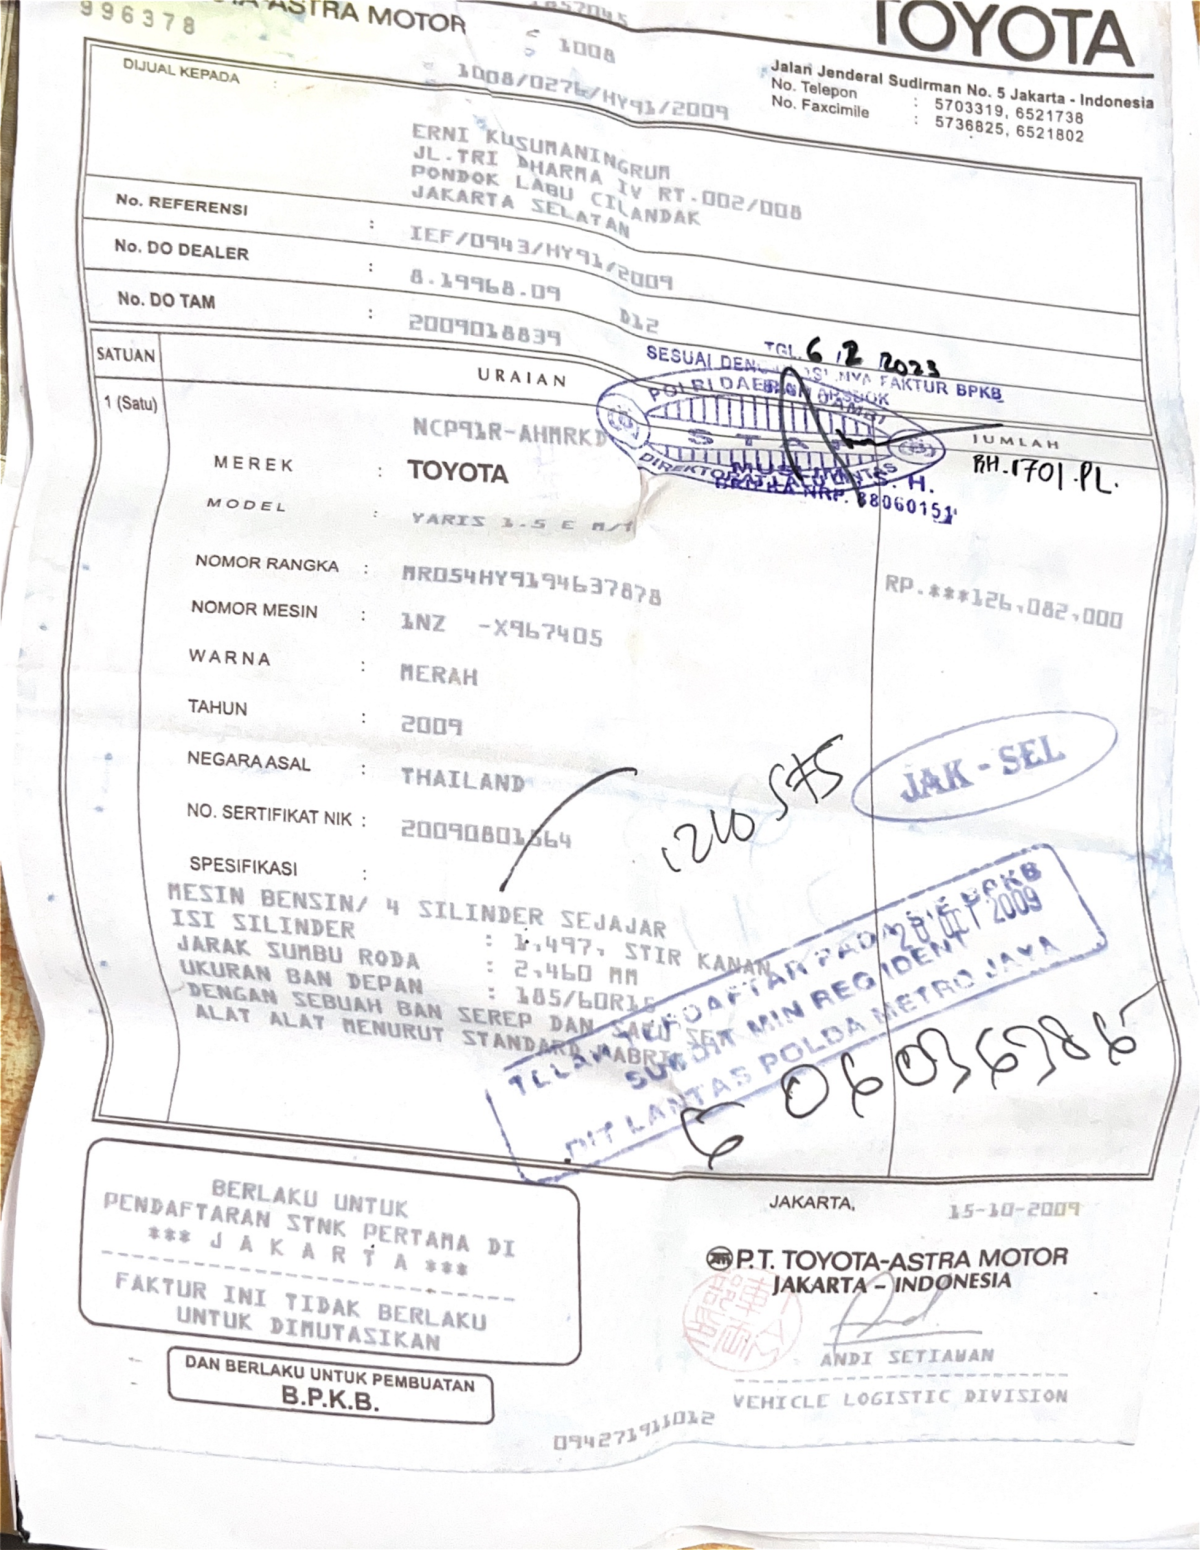 996378
ASTRA MOTOR
1857045
: 1008
: 1008/0276/HY91/2009
TOYOTA
Jalan Jenderal Sudirman No. 5 Jakarta - Indonesia
No. Telepon : 5703319, 6521738
No. Faxcimile : 5736825, 6521802
DIJUAL KEPADA :
ERNI KUSUMANINGRUM
JL.TRI DHARMA IV RT.002/008
PONDOK LABU CILANDAK
JAKARTA SELATAN
No. REFERENSI : IEF/0943/HY91/2009
No. DO DEALER : 8.19968.09 D12
No. DO TAM : 2009018839
TGL. 6 . 2 2023
SESUAI DENGAN ASLINYA FAKTUR BPKB
POLRI DAERAH JAMBI
DIREKTORAT LALU LINTAS
MUSLIM, S. H.
NRP. 88060151
SATUAN
URAIAN
JUMLAH
1 (Satu)
NCP91R-AHMRKD
BH.1701.PL.
MEREK : TOYOTA
MODEL : YARIS 1.5 E M/T
NOMOR RANGKA : MR054HY9194637878
RP.***126,082,000
NOMOR MESIN : 1NZ -X967405
WARNA : MERAH
TAHUN : 2009
NEGARA ASAL : THAILAND
JAK - SEL
NO. SERTIFIKAT NIK : 20090801564
SPESIFIKASI :
MESIN BENSIN/ 4 SILINDER SEJAJAR
ISI SILINDER : 1,497, STIR KANAN
JARAK SUMBU RODA : 2,460 MM
UKURAN BAN DEPAN : 185/60R15
DENGAN SEBUAH BAN SEREP DAN SATU SET
ALAT ALAT MENURUT STANDARD PABRIK
TELAH TERDAFTAR PADA SIE BPKB
20 OCT 2009
SUBDIT MIN REG IDENT
DIT LANTAS POLDA METRO JAYA
BERLAKU UNTUK
PENDAFTARAN STNK PERTAMA DI
*** J A K A R T A ***
FAKTUR INI TIDAK BERLAKU
UNTUK DIMUTASIKAN
DAN BERLAKU UNTUK PEMBUATAN
B.P.K.B.
JAKARTA, 15-10-2009
P.T. TOYOTA-ASTRA MOTOR
JAKARTA – INDONESIA
ANDI SETIAWAN
VEHICLE LOGISTIC DIVISION
094271911012